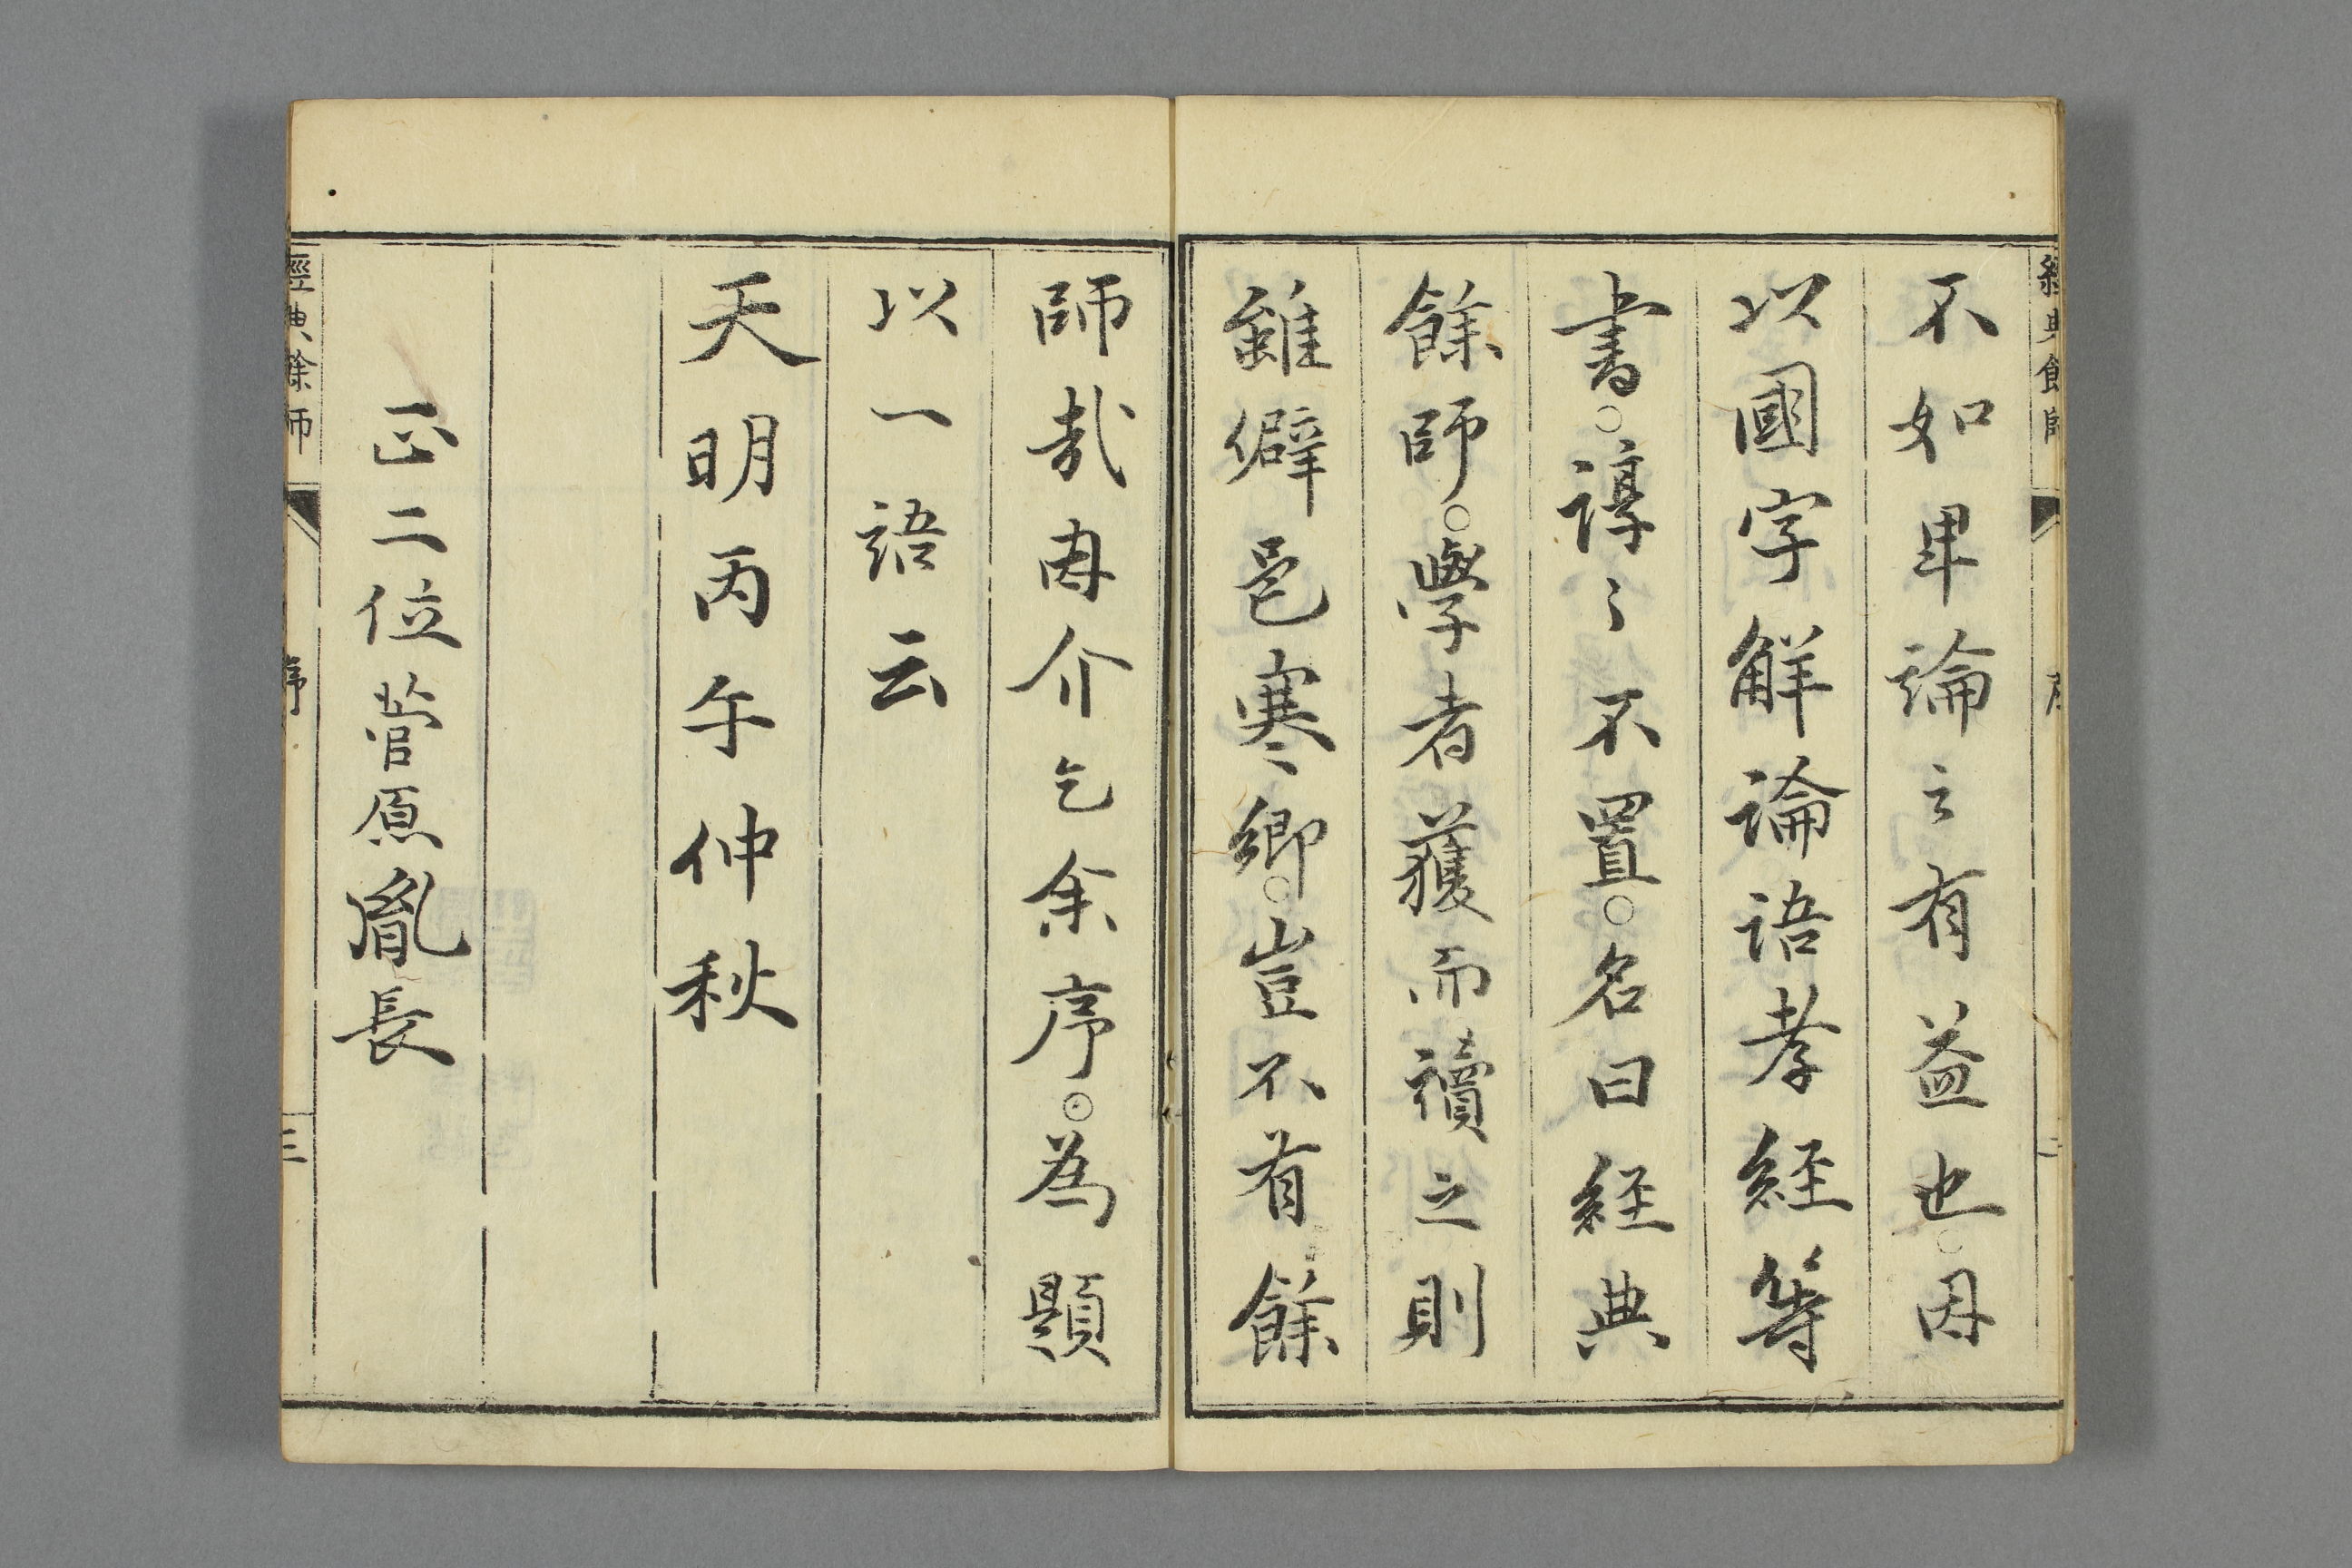 不如卑論之有益也。因
以國字解論語孝經等
書。諄〻不置。名曰経典
餘師。學者獲而讀之則
雖僻邑寒鄉。豈不有餘
師哉因介乞余序。為題
以一語云
天明丙午仲秋
正二位菅原胤長
經典餘師
序
三